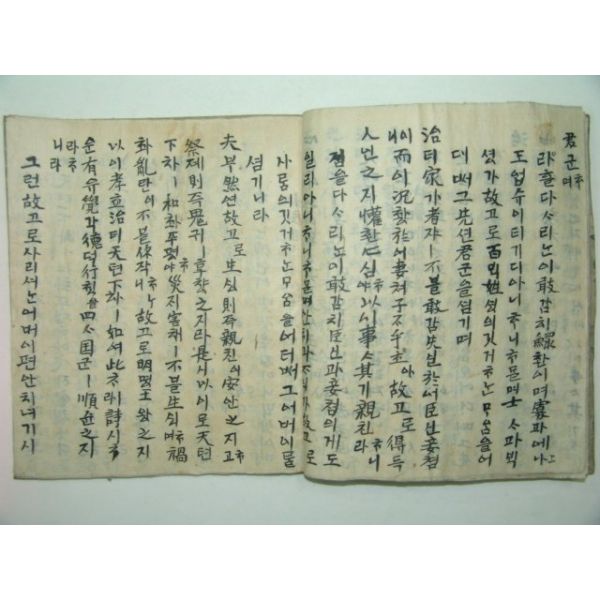 君군며
라흘다스리ᄂᆞ이敢감치鰥환이며寡과에나
도업슈이녀기디아니후니후믈며士ᄉ와ᄇᆡᆨ
셩가故고로百ᄇᆡᆨ姓셩의깃거후ᄂᆞᆫ무음을어
더써그先션君군을셤기며
治티家가者쟈ㅣ不불敢감失실於어臣신妾첩
이而이況황於어妻쳐子ᄌᆞ乎호아故고로得득
人인之지懽환心심야以이事ᄉᆞ其기親친라후니
집을다ᄉᆞ리ᄂᆞ이敢감치臣신과妾첩의게도
일티아니후니후믈며안ᄒᆡ와ᄌᆞ식가故고로
사ᄅᆞᆷ의깃거후ᄂᆞᆫ무음을어더써그어버이를
셤기니라
夫부然연故고로生ᄉᆡᆼ則즉親친이安안之지고
祭졔則즉鬼귀ㅣ享향之지라是시以이로天텬
下하ㅣ和화平평야災ᄌᆡ害해ㅣ不불生ᄉᆡᆼ며禍
화亂란이不불作작니故고로明명王왕之지
以이孝효治티天텬下하ㅣ如여此라詩시
有유覺각德덕行ᄒᆡᆼ四ᄉᆞ国국順순之지
라
니라
그런故고로사라셔ᄂᆞᆫ어버이편안히녀기시